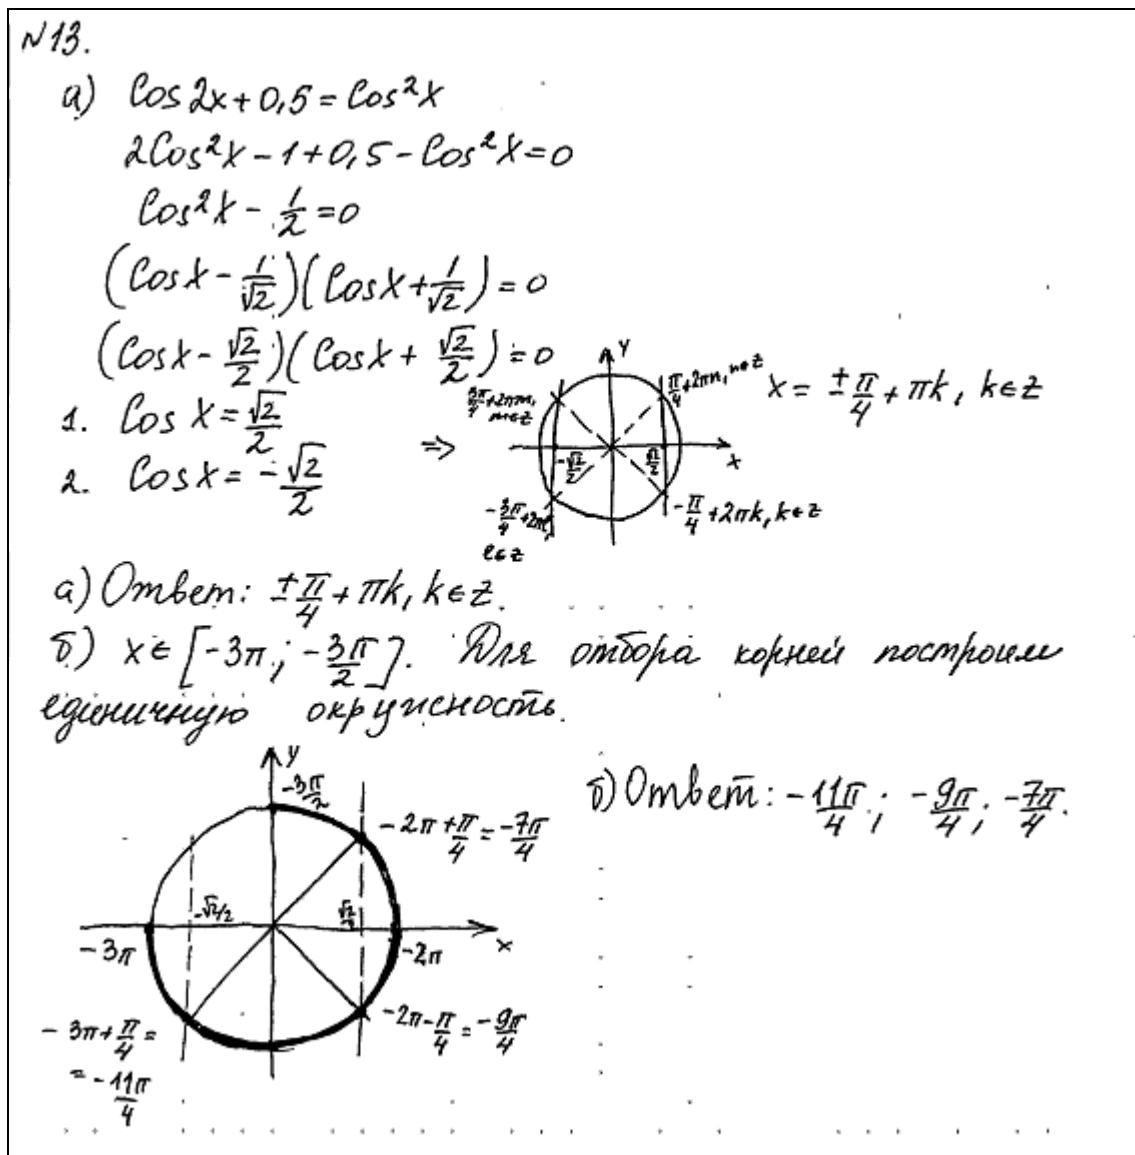 N 13.
а) Cos 2x + 0,5 = Cos²x
2Cos²x - 1 + 0,5 - Cos²x = 0
Cos²x - 1/2 = 0
(Cos x - 1/√2)(Cos x + 1/√2) = 0
(Cos x - √2/2)(Cos x + √2/2) = 0
1. Cos x = √2/2
2. Cos x = -√2/2
=>
y
3π/4 + 2πm, m∈z
π/4 + 2πn, n∈z
-√2/2
√2/2
x
-3π/4 + 2πl, l∈z
-π/4 + 2πk, k∈z
x = ±π/4 + πk, k∈z
а) Ответ: ±π/4 + πk, k∈z.
б) x∈[-3π; -3π/2]. Для отбора корней построим
единичную окружность.
y
-3π/2
-2π + π/4 = -7π/4
-√2/2
√2/2
-3π
-2π
x
-3π + π/4 =
= -11π/4
-2π - π/4 = -9π/4
б) Ответ: -11π/4; -9π/4; -7π/4.